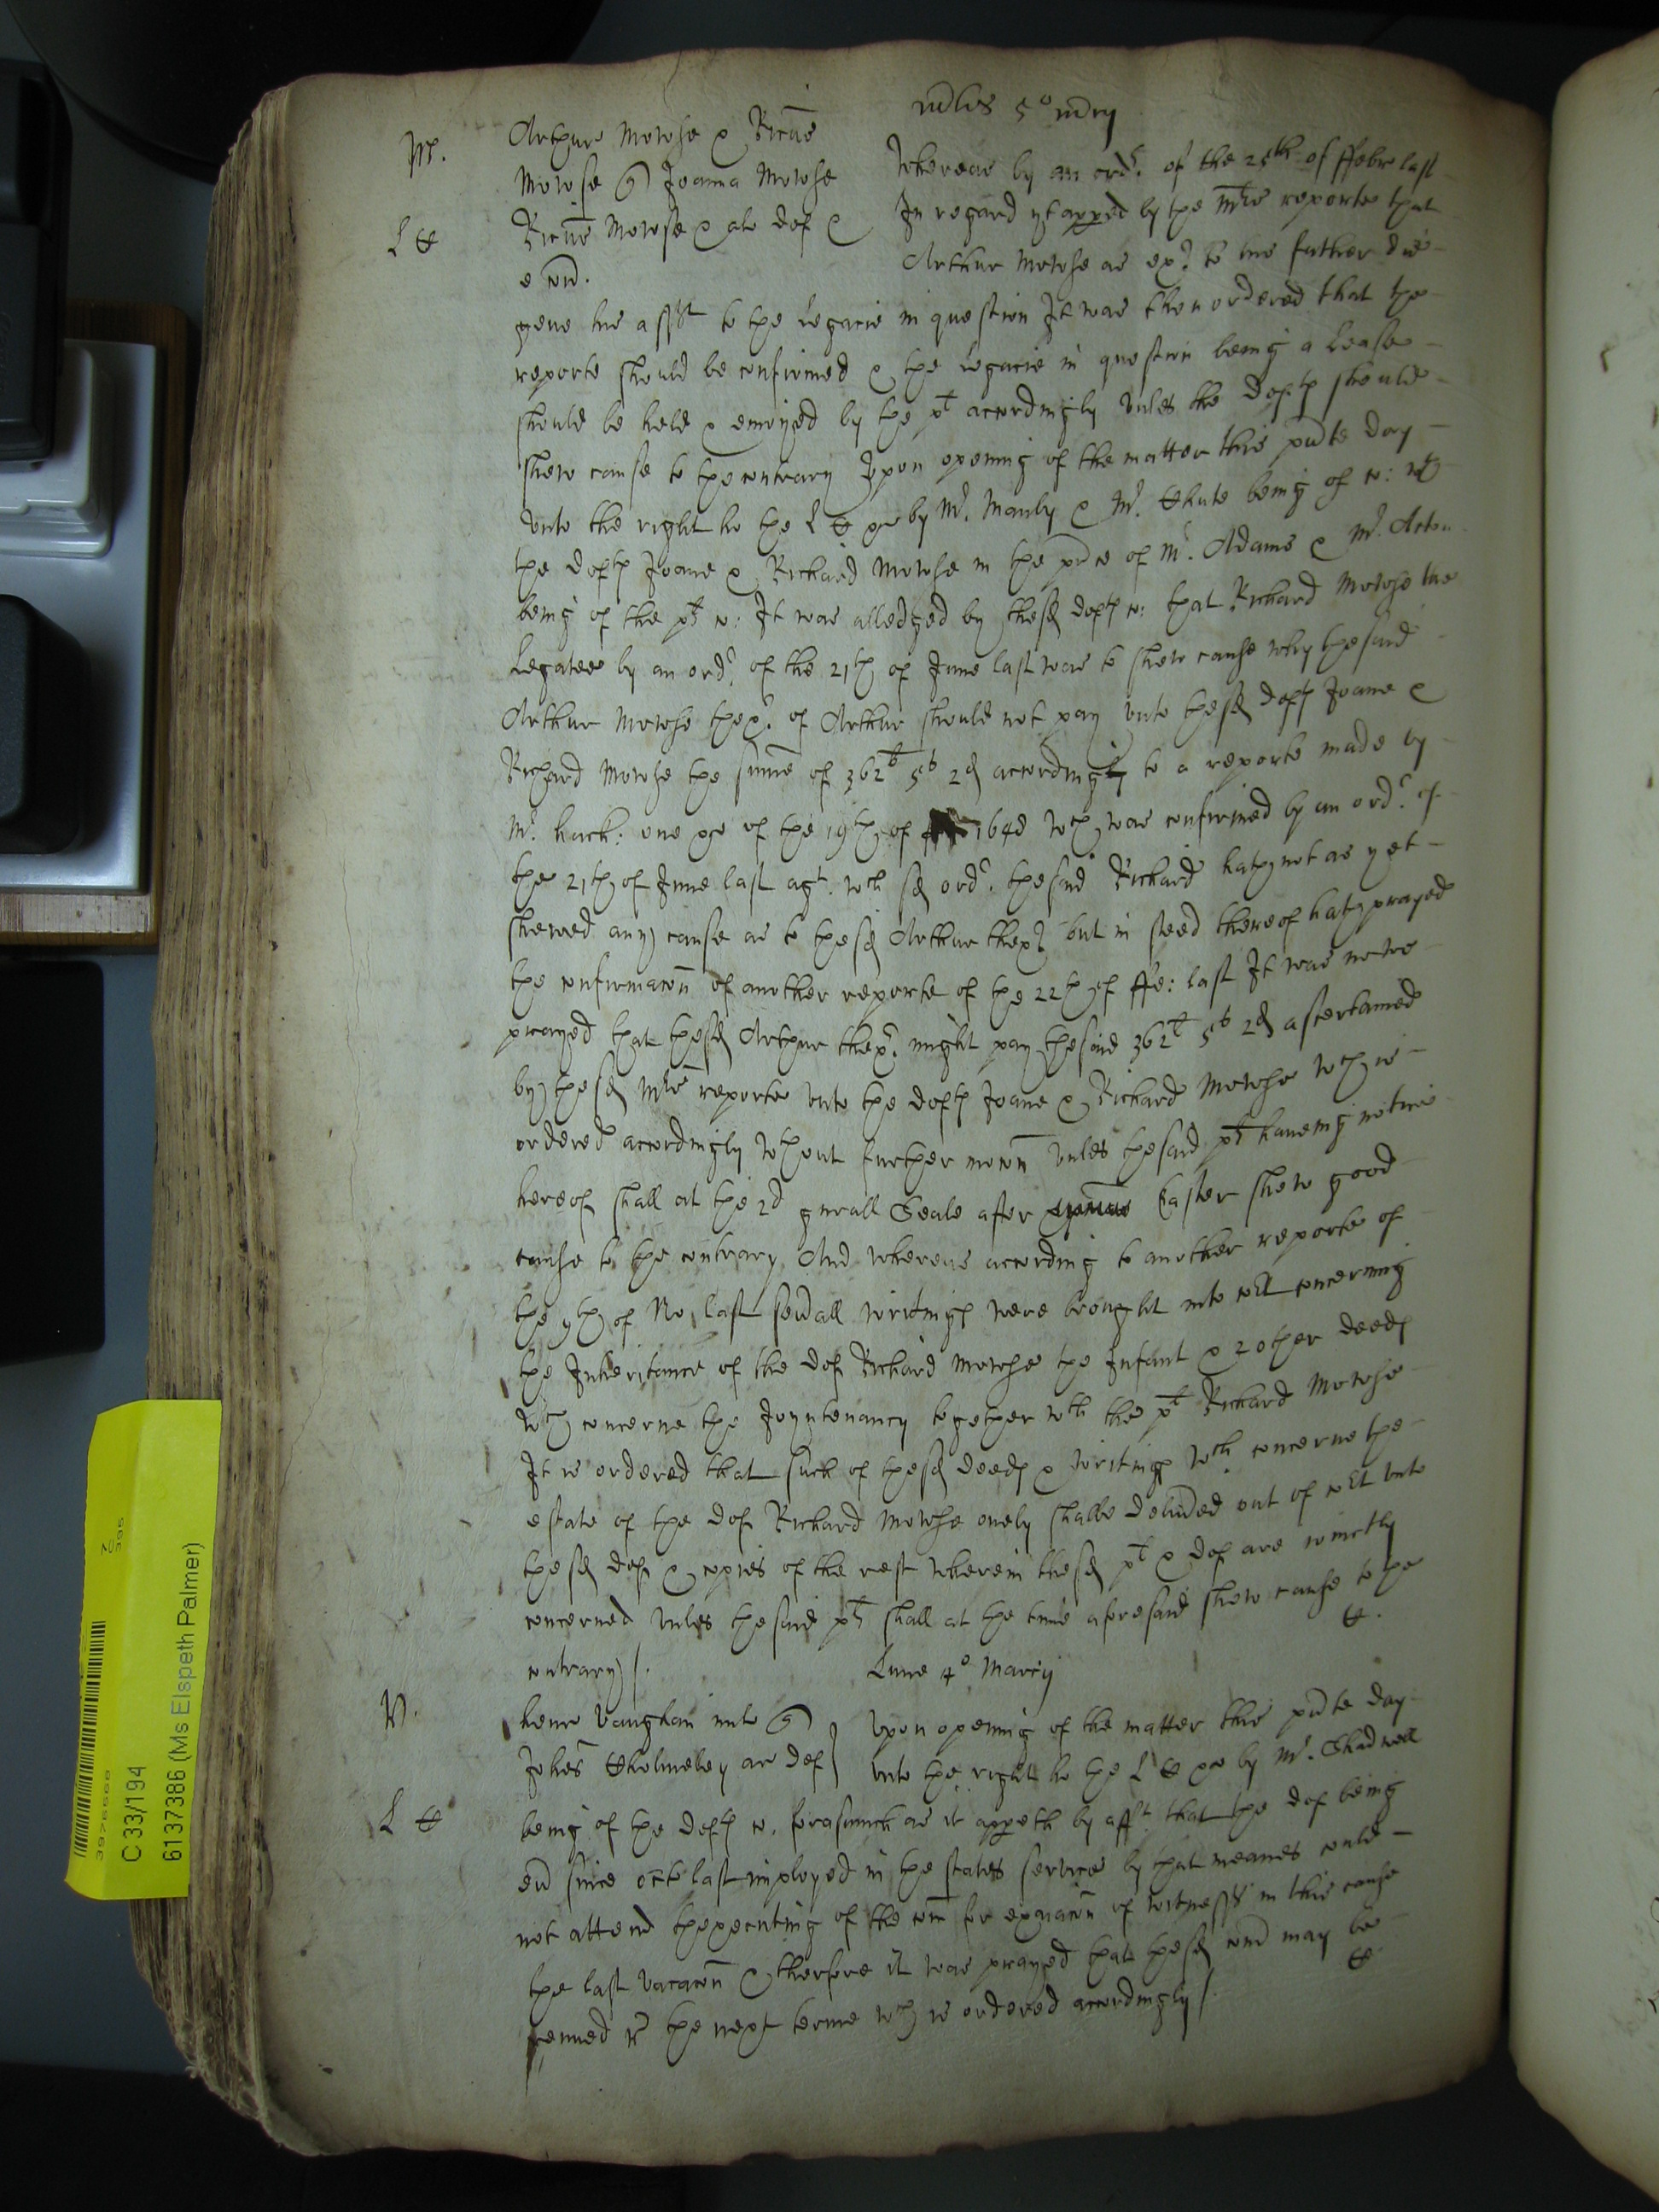 m̃tis 5° m̃cij
M.
Arthur Mowse & Ricus
Mowse q Joanna Mowse
Ricus Mowse & als def &
e con̄.
L C
Whereas by an ordr. of the 25th of ffebr last
In regard yt apped by the Mrs reporte that
Arthur Mowse as exr. to his father did
geve his asst to the Legacie in question It was then ordered that the
reporte should be confirmed & the Legacie in question being a Lease
should be held & enioyed by the plt accordingly vnles the Defts should
shew cause to the contrary Vpon opening of the matter this pn̄te day
vnto the right ho the L C gr by Mr. Manby & Mr. Chute being of co: wth
the defts Joane & Richard Mowse in the pn̄ce of Mr. Adams & Mr. Acton
being of the plts co: It was alledged by these defts co: that Richard Mowse the
Legatee by an ordr. of the 21th of June last was to shew cause why the said
Arthur Mowse thexr. of Arthur should not pay vnto the sd defts Joane &
Richard Mowse the sum̄e of 362l 5s 2d accordingly to a reporte made by
Mr. hack: one gr of the 19th of 1648 wch was confirmed by an ordr. of
the 21th of June last agt. wch sd ordr. the said Richard hath not as yet
shewed any cause as to the sd Arthur thexr but in steed thereof hath prayed
the confirmacōn of another reporte of the 22th of ffe: last It was nowe
prayed that the sd Arthur thexr. might pay the said 362l 5s 2d ascertained
by the sd Mrs reporte vnto the defts Joane & Richard Mowse wch is
ordered accordingly wthout further mocōn vnles the said plts haveing notice
hereof shall at the 2d gnrall Seale after Easter shew good
cause to the contrary And whereas according to another reporte of
the 9th of No. last seũall writings were brought into cot concerning
the Inheritance of the def Richard Mowse the Infant & 2 other deeds
wch concerne the Joyntenancy together wth the plt Richard Mowse
It is ordered that such of the sd deeds & writings wch concerne the
estate of the def Richard Mowse onely shalbe deliũed out of cot vnto
the sd def & copies of the rest wherein the sd plt & def are ioinctly
concerned vnles the said plts shall at the time aforesaid shew cause to the
contrary/. C.
Lune 4° Marcij
V.
henr Vaughan mile q
Johes Cholmeley ar def
L C
Vpon opening of the matter this pn̄te day
vnto the right ho the L C gr by Mr. Shadwell
being of the defts co. forasmuch as it appeth by afft. that the def being
eũ since octr last imployed in the states service by that meanes could
not attend thexecuting of the com̄ for exaiacōn of witnesss in this cause
the last vacacōn & therfore it was prayed that the sd com̄ may be
renued rr the next terme wch is ordered accordingly/. C
C 33/194
6137386 (Ms Elspeth Palmer)